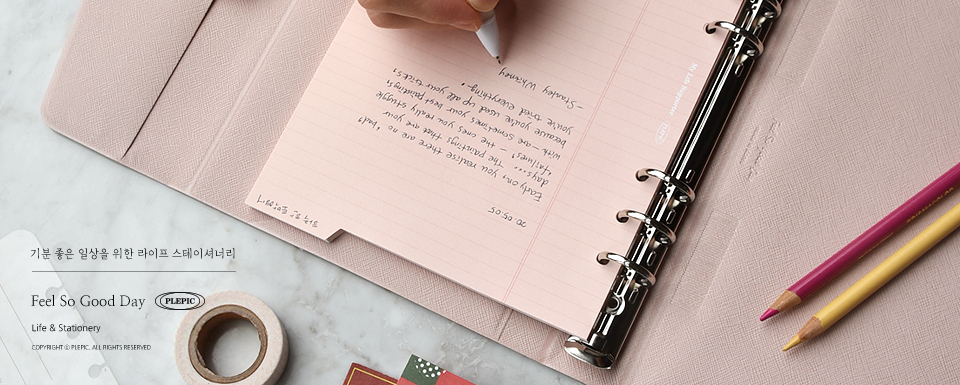 20.05.05
Early on, you realise there are no 'bad'
days.... The paintings that are your
'failures' - the ones you really struggle
with - are sometimes your best paintings,
because you've used up all your tricks,
you've tried everything.
- Stanley Whitney
My Life Supporter
PLEPIC
기분 좋은 일상을 위한 라이프 스테이셔너리
Feel So Good Day PLEPIC
Life & Stationery
COPYRIGHT ⓒ PLEPIC. ALL RIGHTS RESERVED